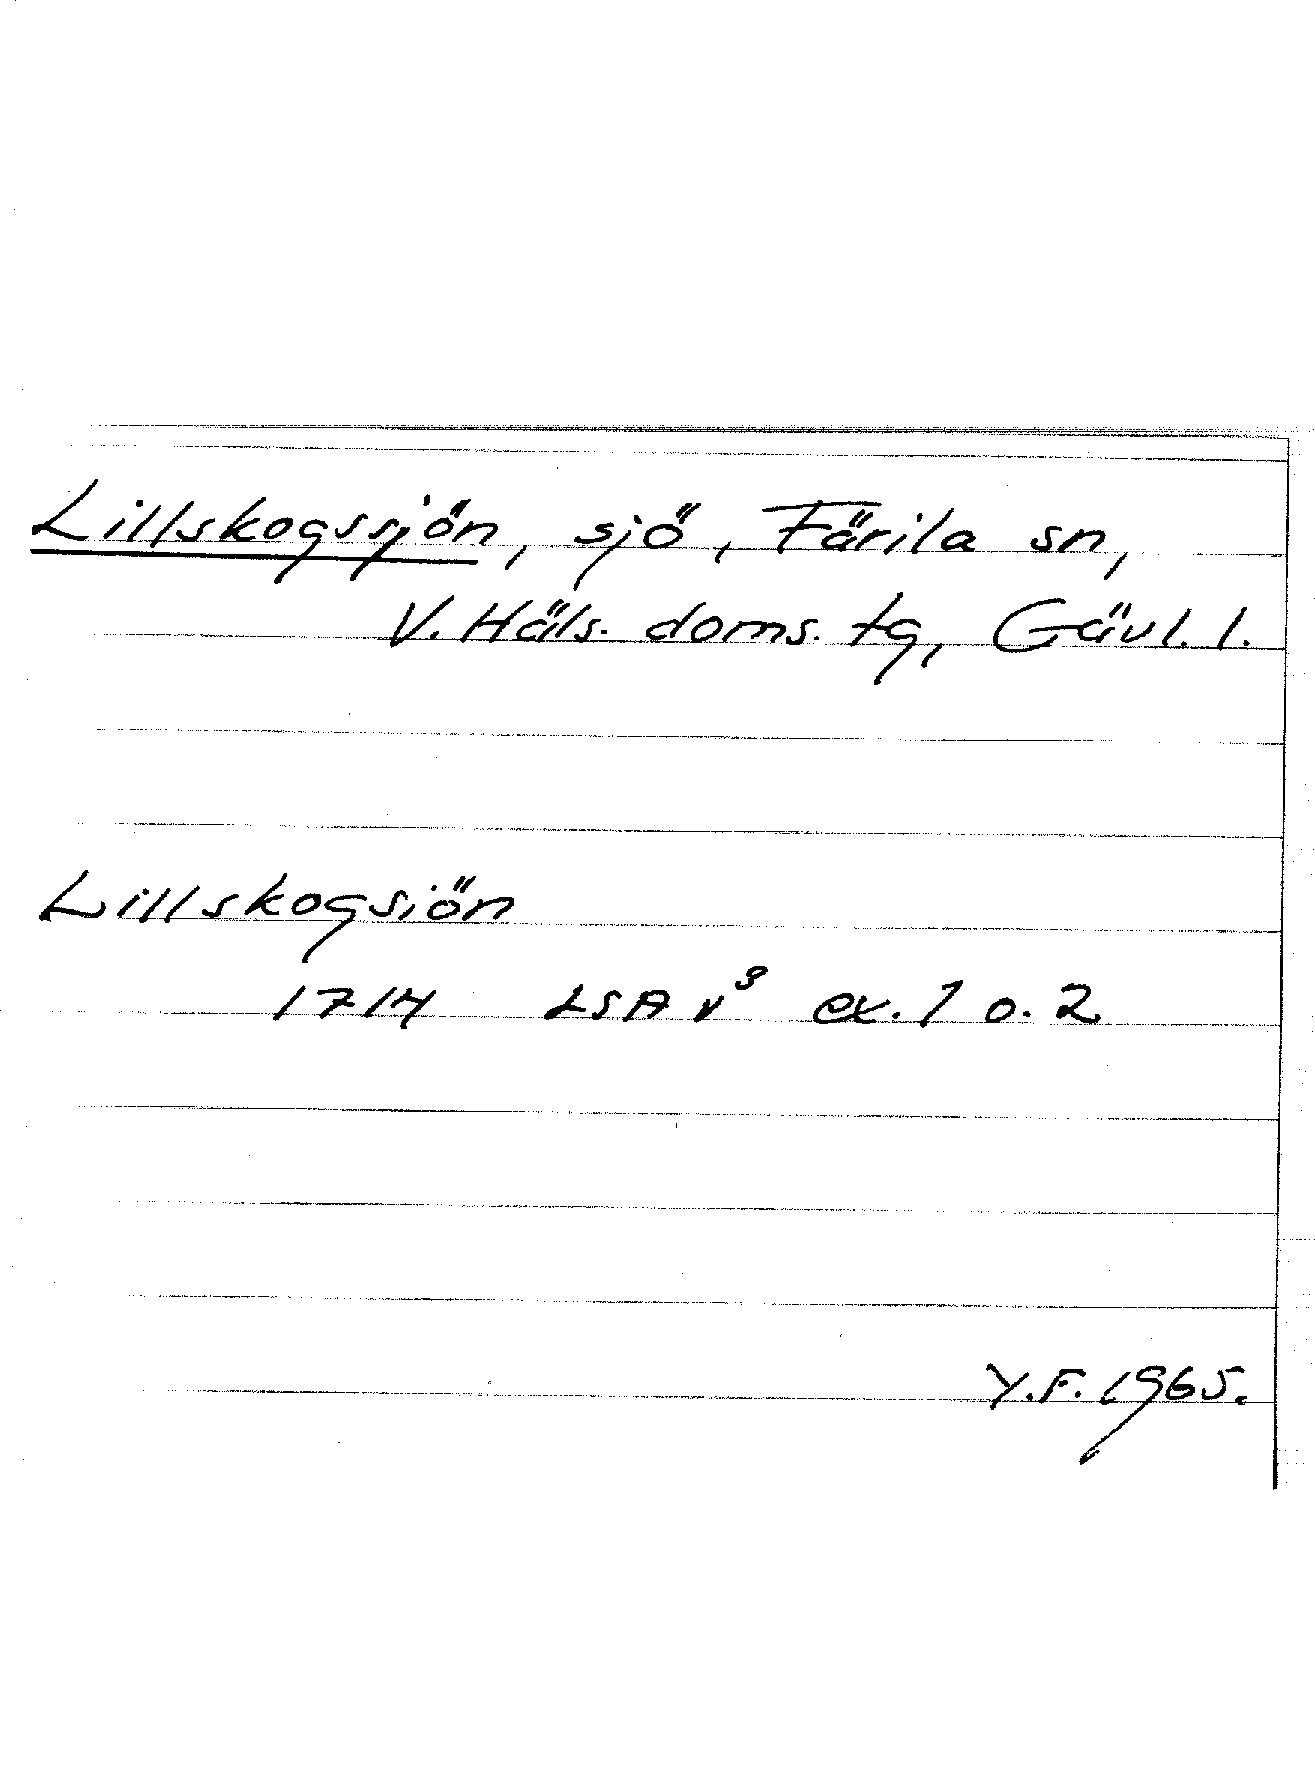 Lillskogssjön, sjö, Färila sn,
V. Häls. doms. tg, Gävl. l.
Lillskogsiön
1714 LSA v³ ex. 1 o. 2
Y.F. 1965.